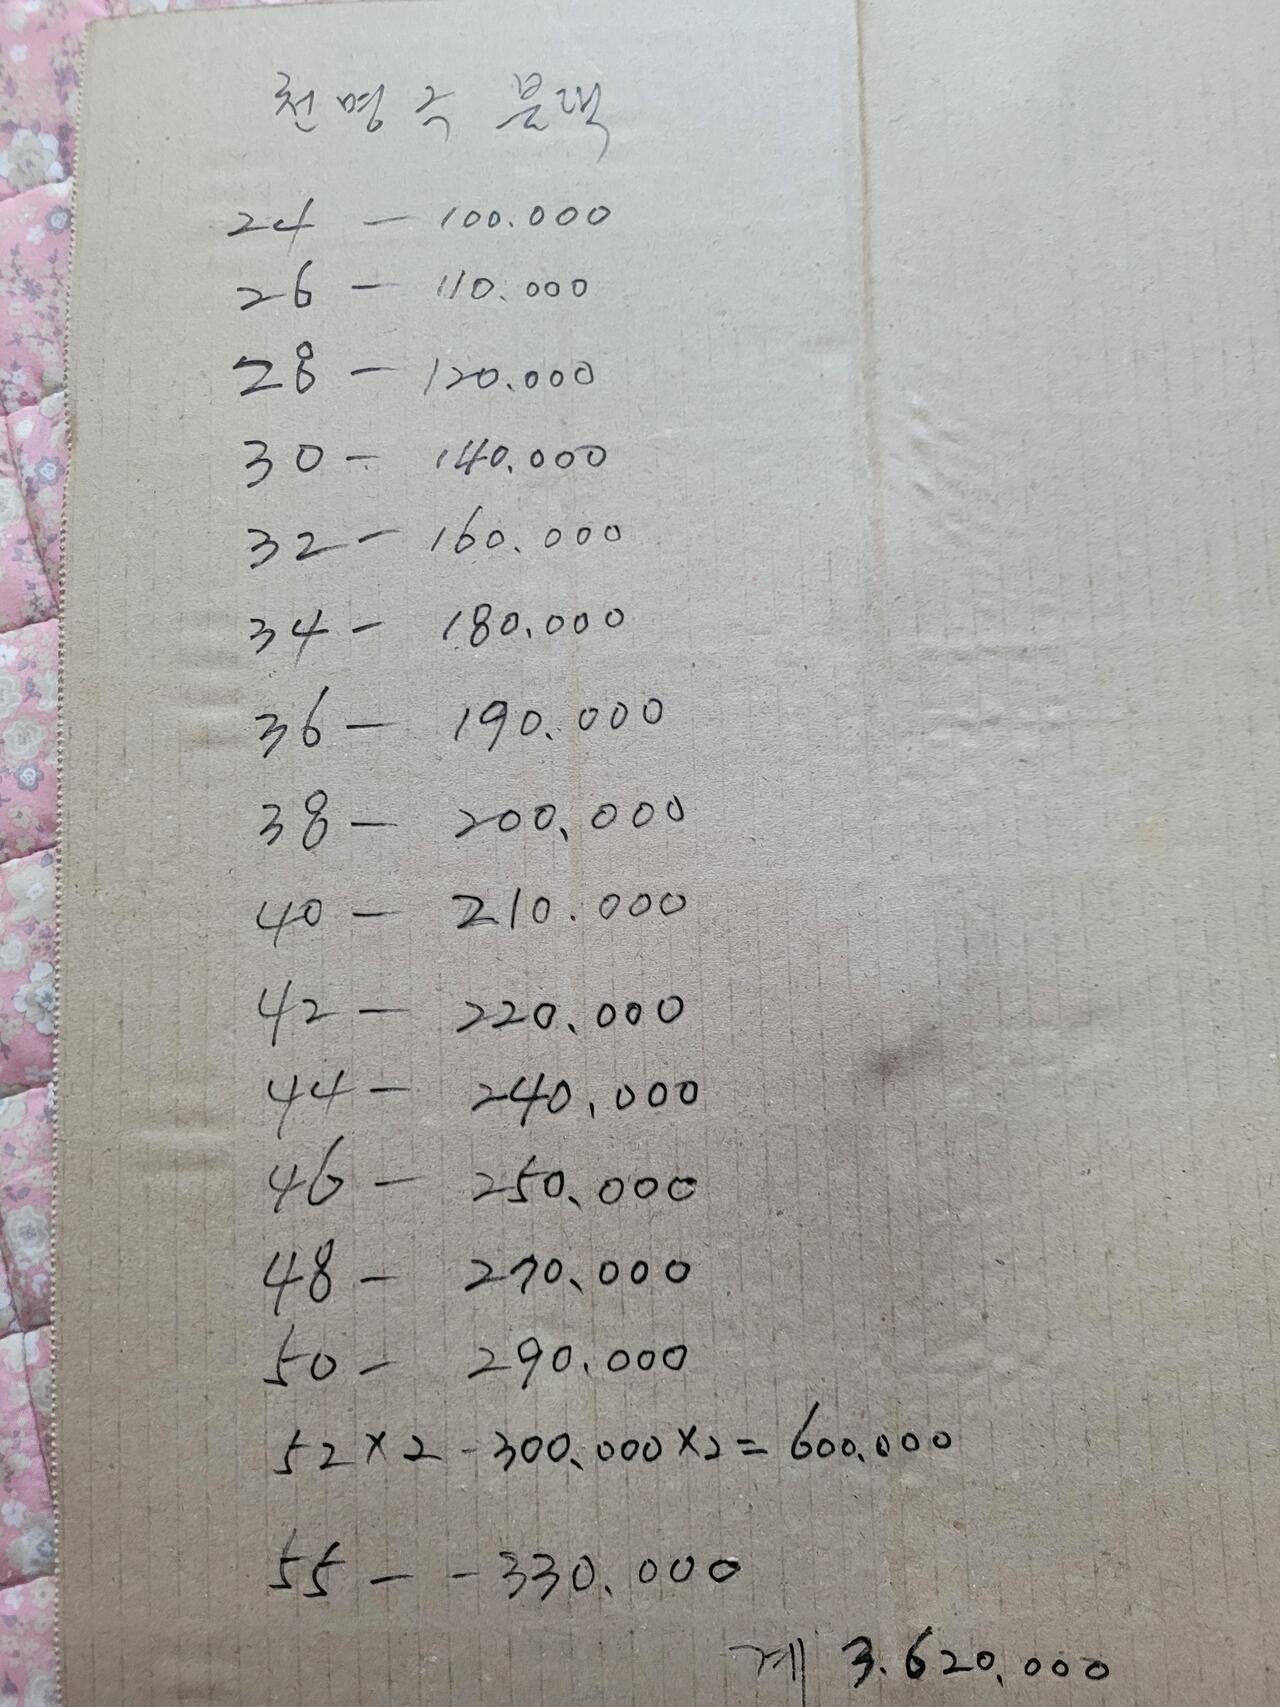 천명주 블랙
24 - 100.000
26 - 110.000
28 - 120.000
30 - 140.000
32 - 160.000
34 - 180.000
36 - 190.000
38 - 200,000
40 - 210.000
42 - 220,000
44 - 240,000
46 - 250,000
48 - 270,000
50 - 290,000
52×2 - 300,000×2 = 600,000
55 - - 330,000
계 3.620,000